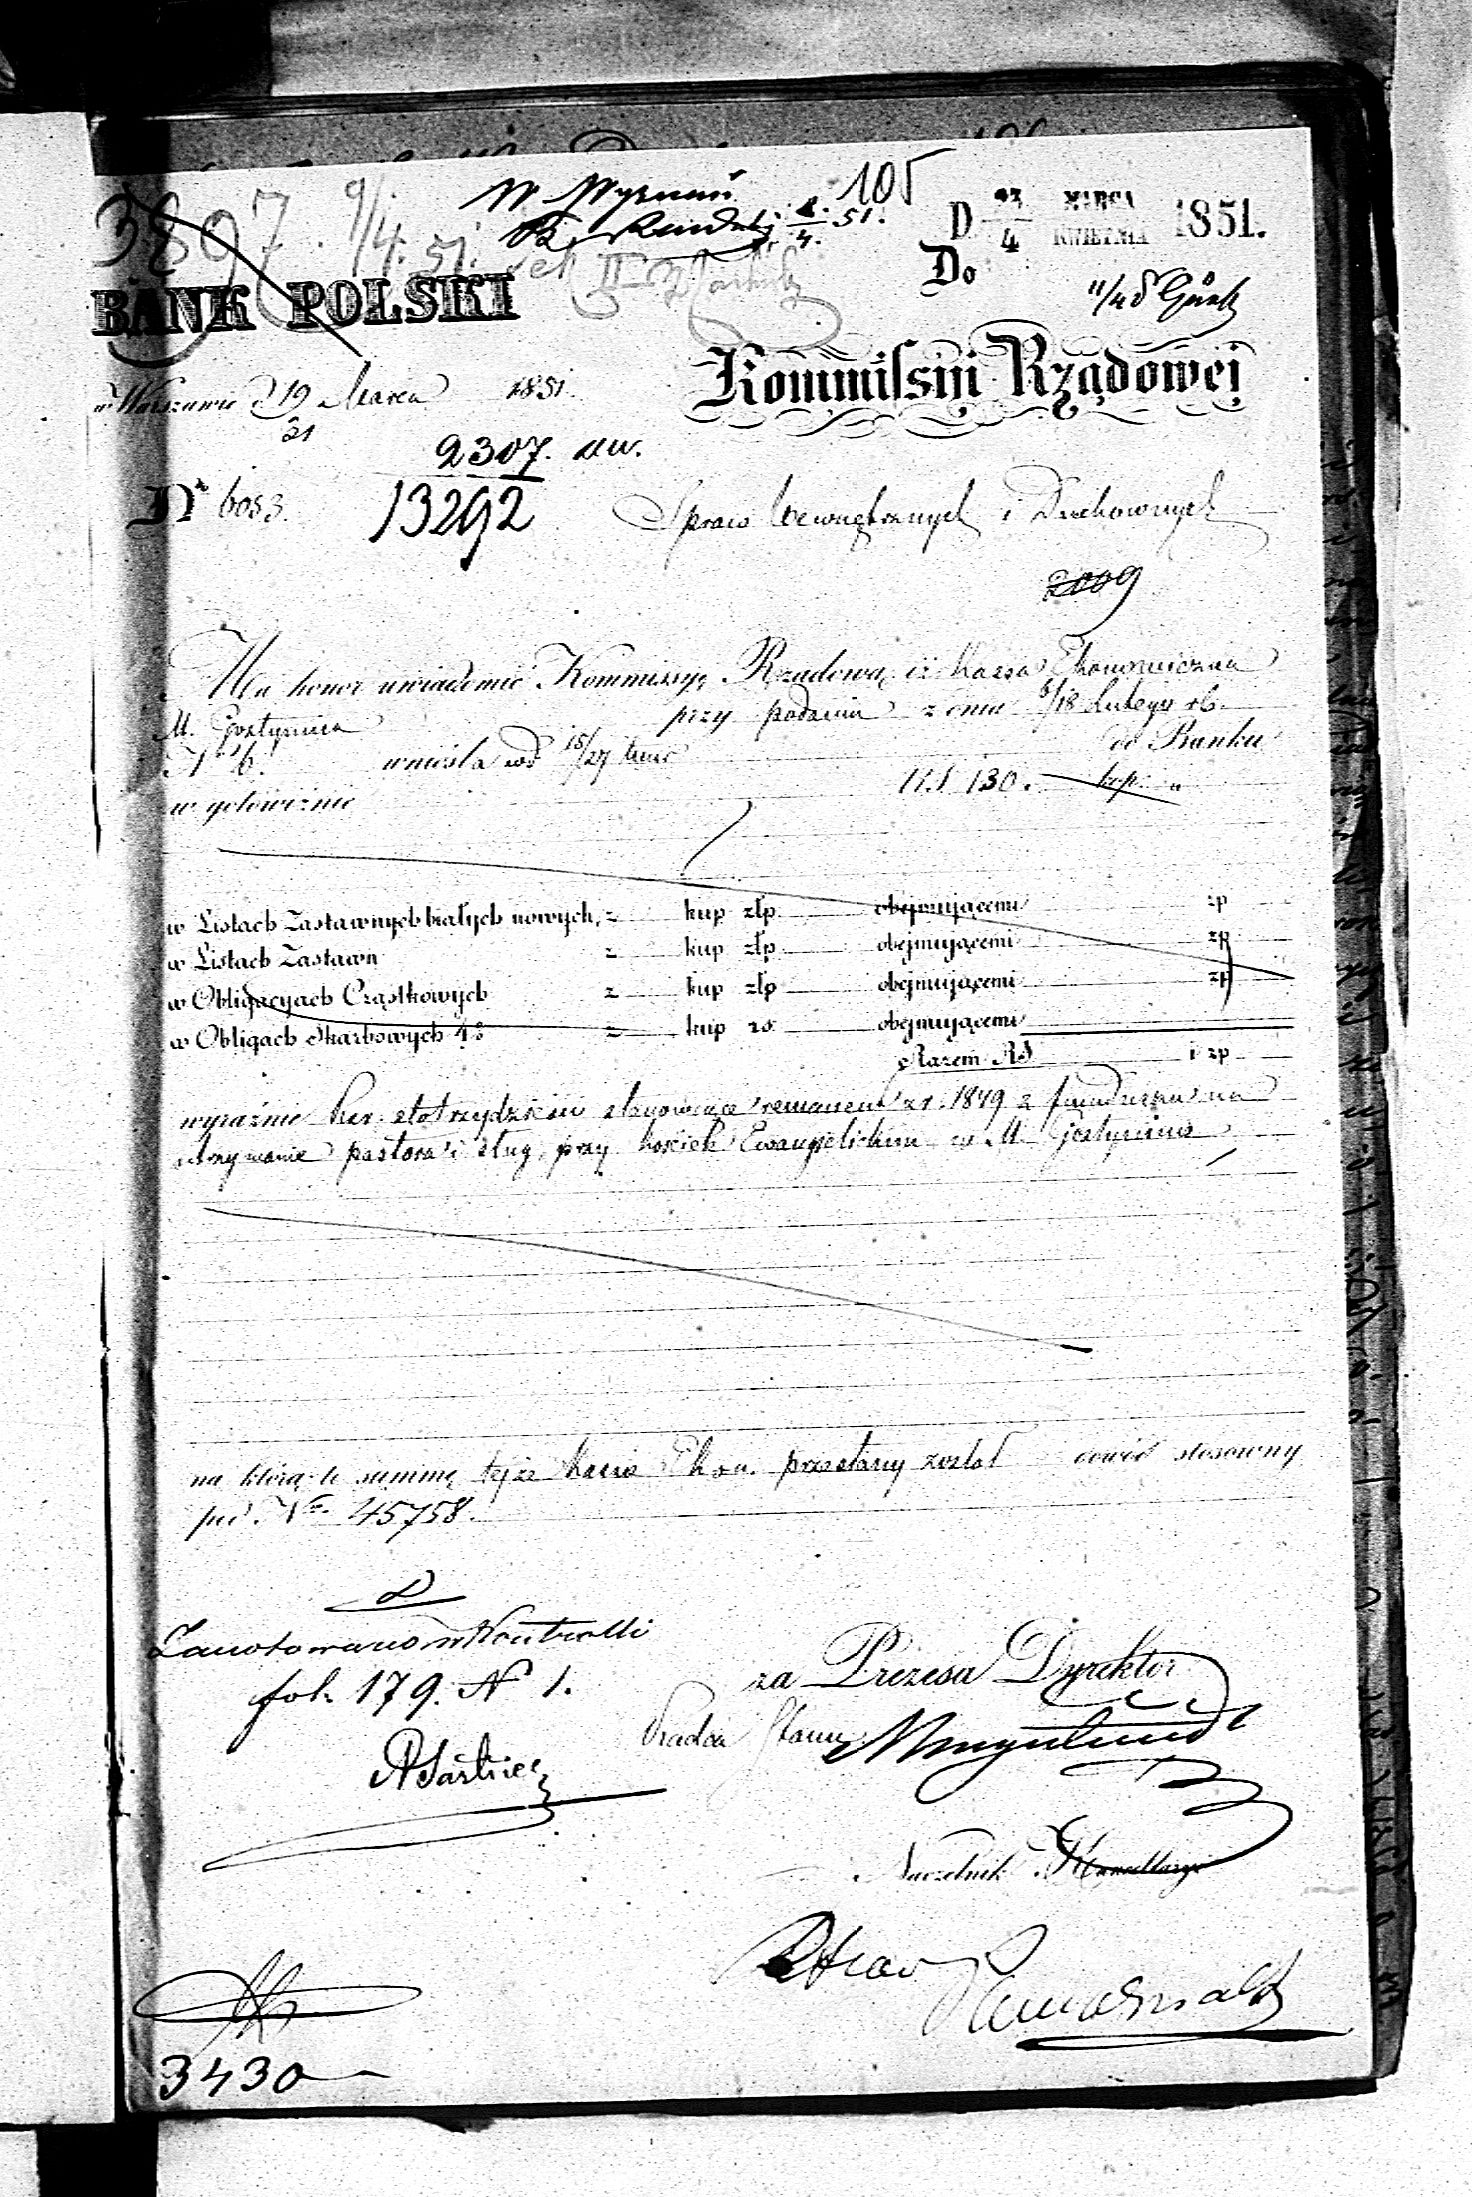 3897. 9/4. 51.
105
D. 23/4 MARCA KWIETNIA 1851.
Do
BANK POLSKI
Kommissyi Rządowej
w Warszawie d 19/31 Marca 1851
2307. WW.
13292
Nr 6053.
Spraw Wewnętrznych i Duchownych
2009
Ma honor uwiadomić Kommissyę Rządową iż Kassa Ekonomiczna
M. Gostynina przy podaniu z dnia 6/18 Lutego rb.
Nr 6. wniosła pod 15/27 t. m. do Banku
w gotowiźnie RS 130. kop. „
w Listach Zastawnych białych nowych, z kup złp obejmującemi zp
w Listach Zastawn z kup złp obejmującemi zp
w Obligacyach Cząstkowych z kup złp obejmującemi zp
w Obligach Skarbowych 4% z kup rs obejmującemi
Razem RS i zp
wyraźnie rsr. sto trzydzieści stanowiące remanent z r. 1849 z funduszu na
utrzymanie pastora i sług przy kościele Ewangelickim w M. Gostyninie
na którą to summę tejże Kassie Ekon. przesłany został dowód stosowny
pod Nrem 45758.
Zanotowano w Kontrolli
fol. 179. N 1.
za Prezesa Dyrektor
Radca Stanu
Naczelnik Kancellaryi
3430